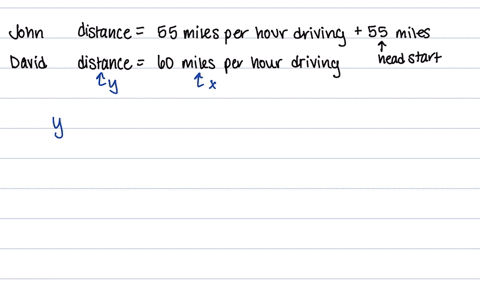 John distance = 55 miles per hour driving + 55 miles
↑
head start
David distance = 60 miles per hour driving
↑y ↑x
y